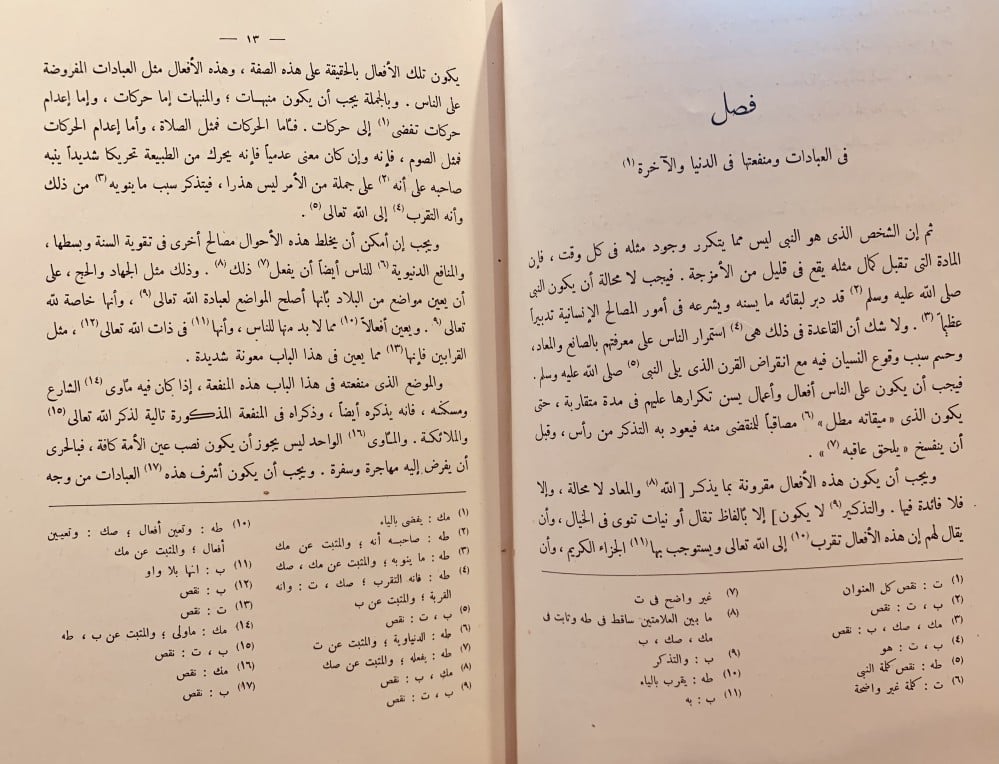 فصل
فى العبادات ومنفعتها فى الدنيا والآخرة (١)
ثم إن الشخص الذى هو النبى ليس مما يتكرر وجود مثله فى كل وقت ، فإن
المادة التى تقبل كمال مثله يقع فى قليل من الأمزجة . فيجب لا محالة أن يكون النبى
صلى الله عليه وسلم (٢) قد دبر لبقائه ما يسنه ويشرعه فى أمور المصالح الإنسانية تدبيراً
عظيماً (٣) . ولا شك أن القاعدة فى ذلك هى (٤) استمرار الناس على معرفتهم بالصانع والمعاد،
وحسم سبب وقوع النسيان فيه مع انقراض القرن الذى يلى النبى (٥) صلى الله عليه وسلم .
فيجب أن يكون على الناس أفعال وأعمال يسن تكرارها عليهم فى مدة متقاربة ، حتى
يكون الذى « ميقاته مطل » (٦) مصاقباً للمنقضى منه فيعود به التذكر من رأس ، وقبل
أن ينفسخ « يلحق عاقبه (٧) » .
ويجب أن يكون هذه الأفعال مقرونة بما يذكر [ الله (٨) والمعاد لا محالة ، وإلا
فلا فائدة فيها . والتذكير (٩) لا يكون ] إلا بألفاظ تقال أو نيات تنوى فى الخيال ، وأن
يقال لهم إن هذه الأفعال تقرب (١٠) إلى الله تعالى ويستوجب بها (١١) الجزاء الكريم ، وأن
(١) ت : نقص كل العنوان
(٢) ب ، ت : نقص
(٣) مك ، صك ، ب : نقص
(٤) ب ، ت : هو
(٥) طه : نقص كلمة النبى
(٦) ت : كلمة غير واضحة
(٧) غير واضح فى ت
(٨) ما بين العلامتين ساقط فى طه وثابت فى
مك ، صك ، ب
(٩) ب : والتذكر
(١٠) طه : يقرب بالياء
(١١) ب : به
— ١٣ —
يكون تلك الأفعال بالحقيقة على هذه الصفة ، وهذه الأفعال مثل العبادات المفروضة
على الناس . وبالجملة يجب أن يكون منبهات ؛ والمنبهات إما حركات ، وإما إعدام
حركات تفضى (١) إلى حركات . فأما الحركات فمثل الصلاة ، وأما إعدام الحركات
فمثل الصوم ، فإنه وإن كان معنى عدمياً فإنه يحرك من الطبيعة تحريكا شديداً ينبه
صاحبه على أنه (٢) على جملة من الأمر ليس هذرا ، فيتذكر سبب ما ينويه (٣) من ذلك
وأنه التقرب (٤) إلى الله تعالى (٥) .
ويجب إن أمكن أن يخلط هذه الأحوال مصالح أخرى فى تقوية السنة وبسطها ،
والمنافع الدنيوية (٦) للناس أيضاً أن يفعل (٧) ذلك (٨) . وذلك مثل الجهاد والحج ، على
أن يعين مواضع من البلاد بأنها أصلح المواضع لعبادة الله تعالى (٩) ، وأنها خاصة لله
تعالى ٩ . ويعين أفعالاً (١٠) مما لا بد منها للناس ، وأنها (١١) فى ذات الله تعالى (١٢) ، مثل
القرابين فإنها (١٣) مما يعين فى هذا الباب معونة شديدة .
والموضع الذى منفعته فى هذا الباب هذه المنفعة ، إذا كان فيه مأوى (١٤) الشارع
ومسكنه ، فانه يذكره أيضاً ، وذكراه فى المنفعة المذكورة تالية لذكر الله تعالى (١٥)
والملائكة . والمأوى (١٦) الواحد ليس يجوز أن يكون نصب عين الأمة كافة ، فبالحرى
أن يفرض إليه مهاجرة وسفرة . ويجب أن يكون أشرف هذه (١٧) العبادات من وجه
(١) مك : يفضى بالياء
(٢) طه : صاحبه أنه ؛ والمثبت عن مك
(٣) طه : ما ينوبه ؛ والمثبت عن مك ، صك
(٤) طه : فانه التقرب ؛ صك ، ت : وانه
القربة ؛ والمثبت عن ب
(٥) ب ، ت : نقص
(٦) طه : الدنياوية ؛ والمثبت عن ت
(٧) طه : يفعله ؛ والمثبت عن صك
(٨) مك ، ب : نقص
(٩) ب ، ت : نقص
(١٠) طه : وتعين أفعال ؛ صك : وتعيين
أفعال ؛ والمثبت عن مك
(١١) ب : انها بلا واو
(١٢) ب : نقص
(١٣) ت : نقص
(١٤) مك : ماولى ؛ والمثبت عن ب ، طه
(١٥) ب ، ت : نقص
(١٦) مك : نقص
(١٧) ب : نقص